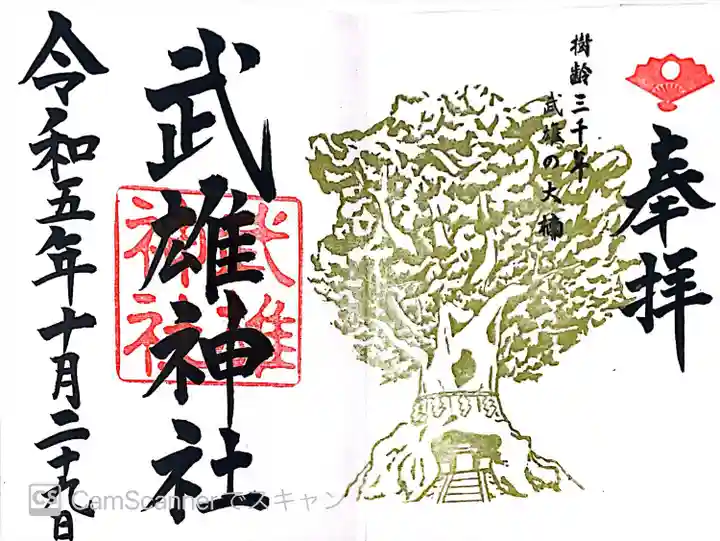 奉拝
樹齢三千年
武雄の大楠
武雄神社
武雄神社
令和五年十月二十九日
CS CamScannerでスキャン